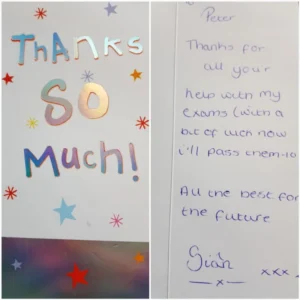 Thanks
So
Much!
Peter
Thanks for
all your
help with my
exams (with a
bit of luck now
i'll pass them-lo
All the best for
the future
Siân
x
xxx